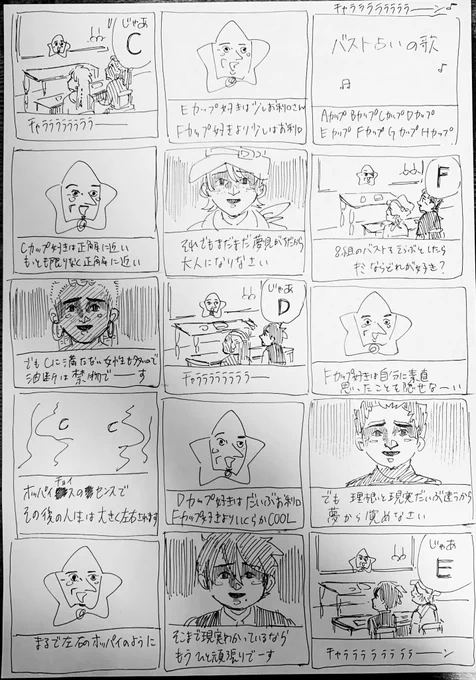 チャラララララララーーン♪
バスト占いの歌
Aカップ Bカップ Cカップ Dカップ
Eカップ Fカップ Gカップ Hカップ
F
8組のバストをえらぶとしたら
キミならどれが好き?
Fカップ好きは自分に素直
思ったことを隠せなーい
でも 理想と現実だいぶ違うから
夢から覚めなさい
じゃあ
E
チャラララララララーーン
Eカップ好きは少しお利口さん
Fカップ好きより少しはお利口
それでもまだまだ夢見がちだから
大人になりなさい
じゃあ
D
チャララララララーー
Dカップ好きはだいぶお利口
Fカップ好きよりいくらかCOOL
そこまで現実わかっているなら
もうひと頑張りでーす
じゃあ
C
チャララララララーー
Cカップ好きは正解に近い
もっとも限りなく正解に近い
でもCに満たない女性も多いので
油断は禁物でーす
C C
オッパイチョイスのセンスで
その後の人生は大きく左右されます
まるで左右のオッパイのように